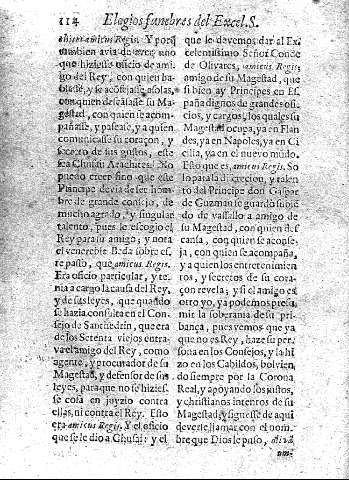 114 Elogios funebres del Excel. S.
erat amicus Regis. Y porq̃
tambien avia de aver uno
que hiziesse oficio de ami
go del Rey, con quien ha
blasse, y se acõsejasse a solas,
con quien descãsasse su Ma
gestad, con quien se acom-
pañasse, y passeasse, y a quien
comunicasse su coraçon, y
secreto de sus gustos, este
era Chusai Arachites. No
puedo creer sino que este
Principe devia de ser hom
bre de grande consejo, de
mucho agrado, y singular
talento, pues le escogio el
Rey para su amigo; y nota
el venerable Beda sobre es-
te passo, que amicus Regis.
Era oficio particular, y te-
nia a cargo la causa del Rey,
y de sus leyes, que quando
se hazia consulta en el Con
sejo de Sanhedrin, que era
de los Setenta viejos entra-
va el amigo del Rey, como
agente, y procurador de su
Magestad, y defensor de sus
leyes, para que no se hizies-
se cosa en juyzio contra
ellas, ni contra el Rey. Esto
era amicus Regis. Y el oficio
que se le dio a Chusai: y el
que le devemos dar al Ex
celentissimo Señor Conde
de Olivares, amicus Regis,
amigo de su Magestad, que
si bien ay Principes en Es
paña dignos de grandes ofi
cios, y cargos, los quales su
Magestad ocupa, ya en Flan
des, ya en Napoles, ya en Ci
cilia, ya en el nuevo mũdo.
Esto que es, amicus Regis. So
lo para la discrecion, y talen
to del Principe don Gaspar
de Guzman se guardò subiẽ
do de vassallo a amigo de
su Magestad, con quien des
cansa, con quien se aconse-
ja, con quien se acompaña,
y a quien los entretenimien
tos, y secretos de su cora-
çon revela; y si el amigo es
otro yo, ya podemos presu
mir la soberania de su pri-
bança, pues vemos que ya
que no es Rey, haze su per
sona en los Consejos, y la hi
zo en los Cabildos, bolvien
do siempre por la Corona
Real, y apoyando los justos,
y christianos intentos de su
Magestad, y siguesse de aqui
deverle llamar con el nom-
bre que Dios le puso,